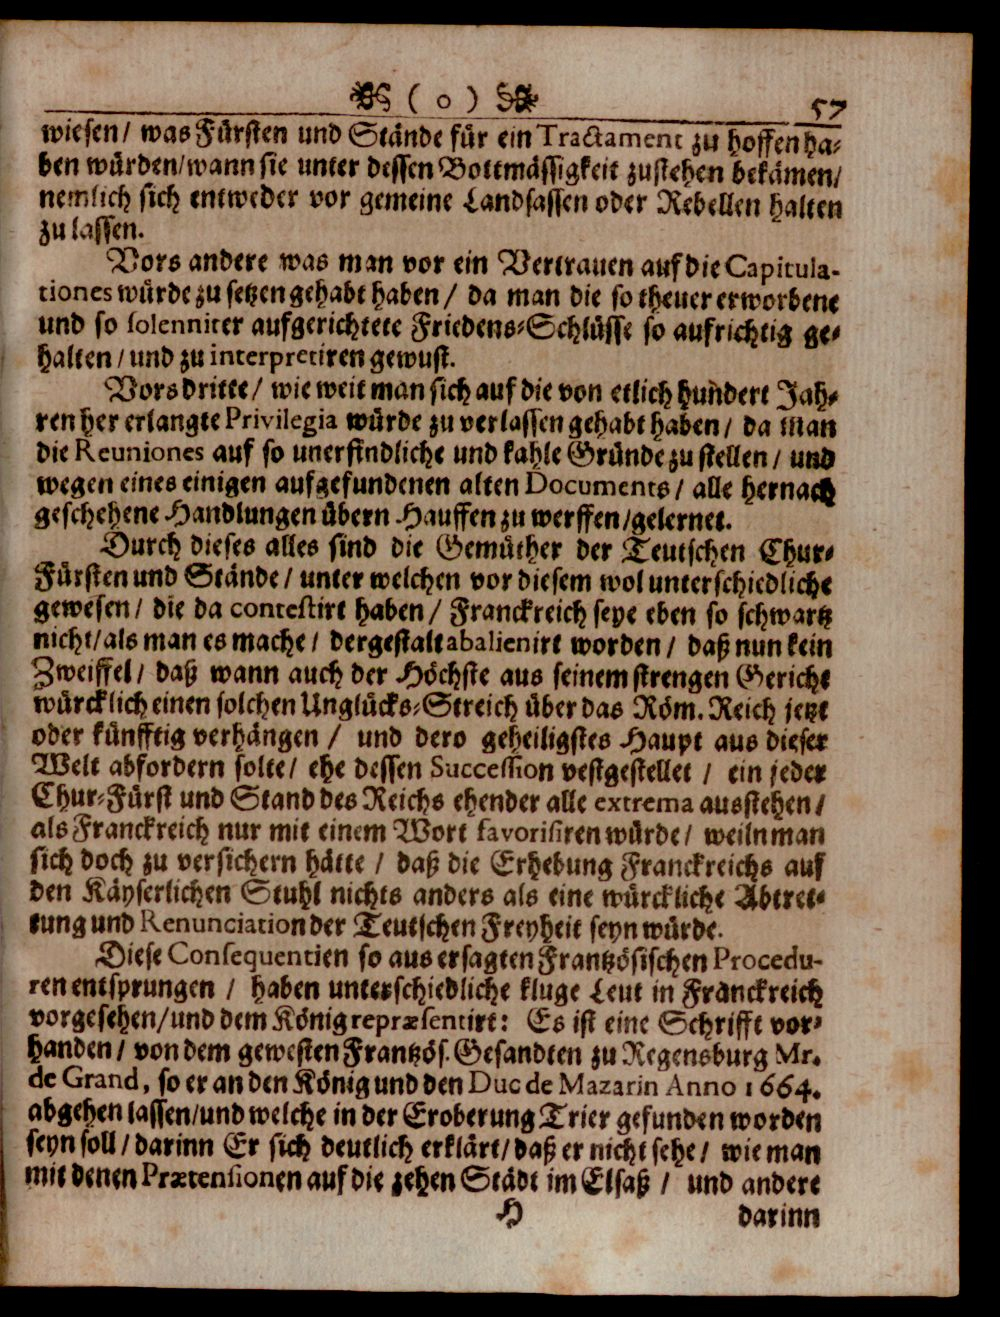 ( o ) 57
wiesen/ was Fürsten und Stände für ein Tractament zu hoffen ha-
ben würden/wann sie unter dessen Bottmässigkeit zustehen bekämen/
nemlich sich entweder vor gemeine Landsassen oder Rebellen halten
zu lassen.
Vors andere was man vor ein Vertrauen auf die Capitula-
tiones würde zu setzen gehabt haben / da man die so theuer erworbene
und so solenniter aufgerichtete Friedens-Schlüsse so aufrichtig ge-
halten / und zu interpretiren gewust.
Vors dritte / wie weit man sich auf die von etlich hundert Jah-
ren her erlangte Privilegia würde zu verlassen gehabt haben / da man
die Reuniones auf so unerfindliche und kahle Gründe zu stellen / und
wegen eines einigen aufgefundenen alten Documents / alle hernach
geschehene Handlungen übern Hauffen zu werffen /gelernet.
Durch dieses alles sind die Gemüther der Teutschen Chur-
Fürsten und Stände / unter welchen vor diesem wol unterschiedliche
gewesen / die da contestirt haben / Franckreich seye eben so schwartz
nicht/als man es mache / dergestalt abalienirt worden / daß nun kein
Zweiffel / daß wann auch der Höchste aus seinem strengen Gericht
würcklich einen solchen Unglücks-Streich über das Röm. Reich jetzt
oder künfftig verhängen / und dero geheiligstes Haupt aus dieser
Welt abfordern solte/ ehe dessen Succession vestgestellet / ein jeder
Chur-Fürst und Stand des Reichs ehender alle extrema ausstehen /
als Franckreich nur mit einem Wort favorisiren würde / weiln man
sich doch zu versichern hätte / daß die Erhebung Franckreichs auf
den Käyserlichen Stuhl nichts anders als eine würckliche Abtret-
tung und Renunciation der Teutschen Freyheit seyn würde.
Diese Consequentien so aus ersagten Frantzösischen Procedu-
ren entsprungen / haben unterschiedliche kluge Leut in Franckreich
vorgesehen/und dem König repræsentirt: Es ist eine Schrifft vor-
handen / von dem gewesten Frantzös. Gesandten zu Regensburg Mr.
de Grand, so er an den König und den Duc de Mazarin Anno 1664.
abgehen lassen/und welche in der Eroberung Trier gefunden worden
seyn soll / darinn Er sich deutlich erklärt/ daß er nicht sehe / wie man
mit denen Prætensionen auf die zehen Städt im Elsaß / und andere
H darinn